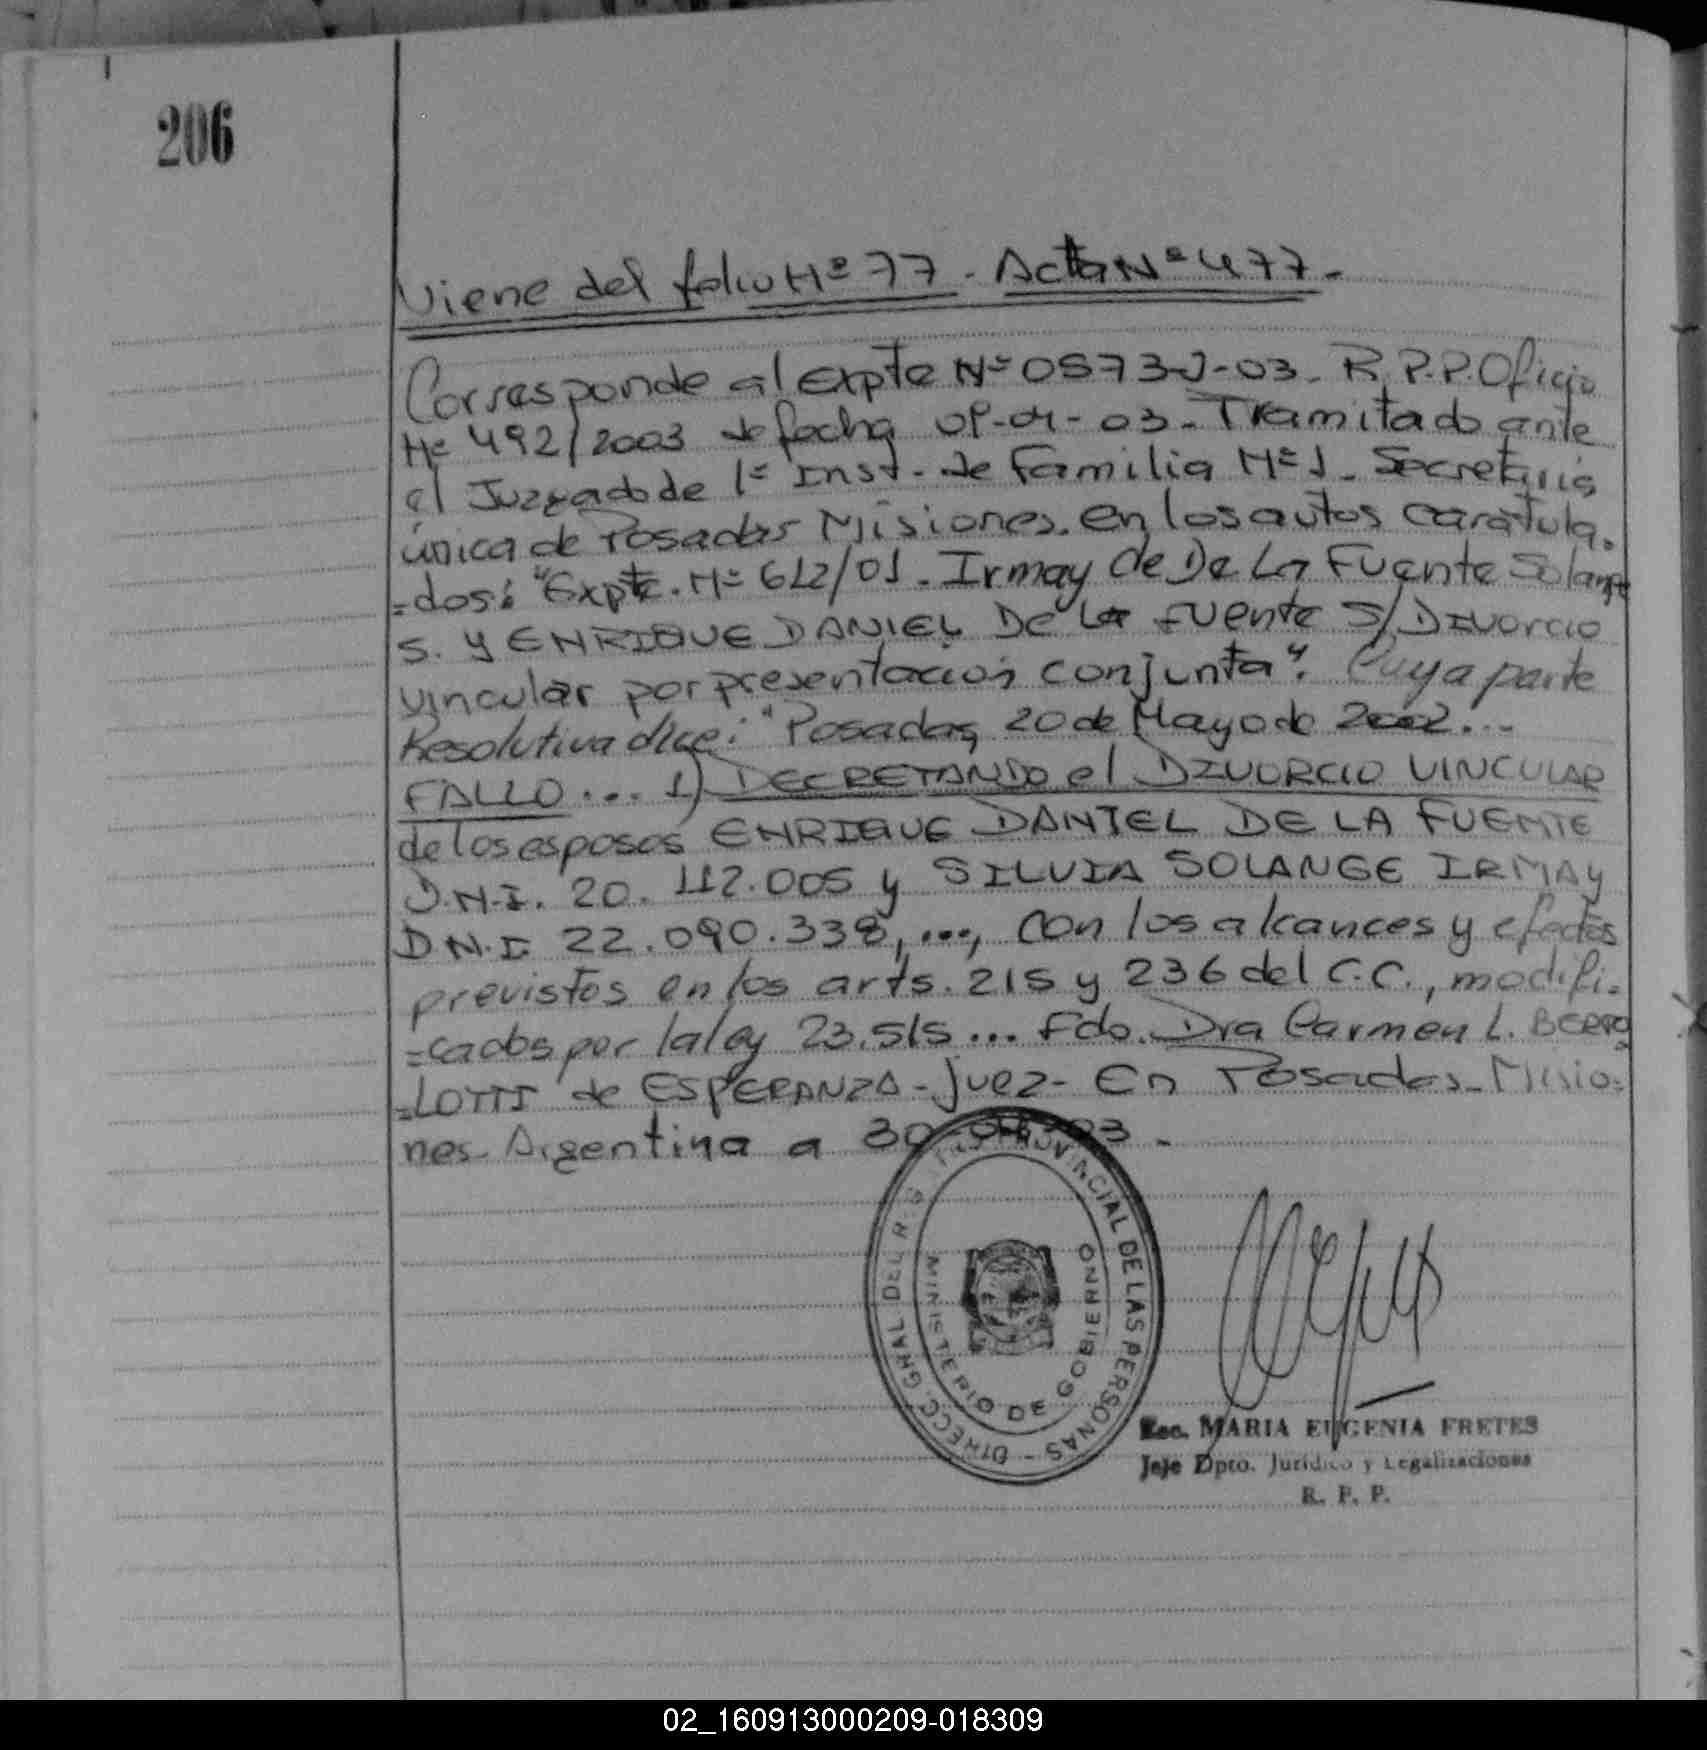 206
Viene del folio Nº 77 - Acta Nº 477.-
Corresponde al Expte Nº 0573-J-03. R.P.P. Oficio
Nº 492/2003 de fecha 09-04-03. Tramitado ante
el Juzgado de 1º Inst. de Familia Nº 1. Secretaria
única de Posadas Misiones. en los autos caratula.
=dos: "Expte. Nº 612/01. Irmay de De La Fuente Solange
S. y ENRIQUE DANIEL De La Fuente S/ DIVorcio
vincular por presentación conjunta". Cuya parte
Resolutiva dice: "Posadas, 20 de Mayo de 2002...
FALLO... 1) DECRETANDO el DIVORCIO VINCULAR
de los esposos ENRIQUE DANIEL DE LA FUENTE
D.N.I. 20.112.005 y SILVIA SOLANGE IRMAY
D.N.I. 22.090.338, ..., con los alcances y efectos
previstos en los arts. 215 y 236 del C.C., modifi.
=cados por la ley 23.515... Fdo. Dra Carmen L. BERTO
=LOTTI de ESPERANZA - juez - En Posadas - Misio=
nes - Argentina a 30 03 -
DIRECC. GRAL DEL R. PROVINCIAL DE LAS PERSONAS -
MINISTERIO DE GOBIERNO
Esc. MARIA EUGENIA FRETES
Jefe Dpto. Jurídico y Legalizaciones
R. P. P.
02_160913000209-018309